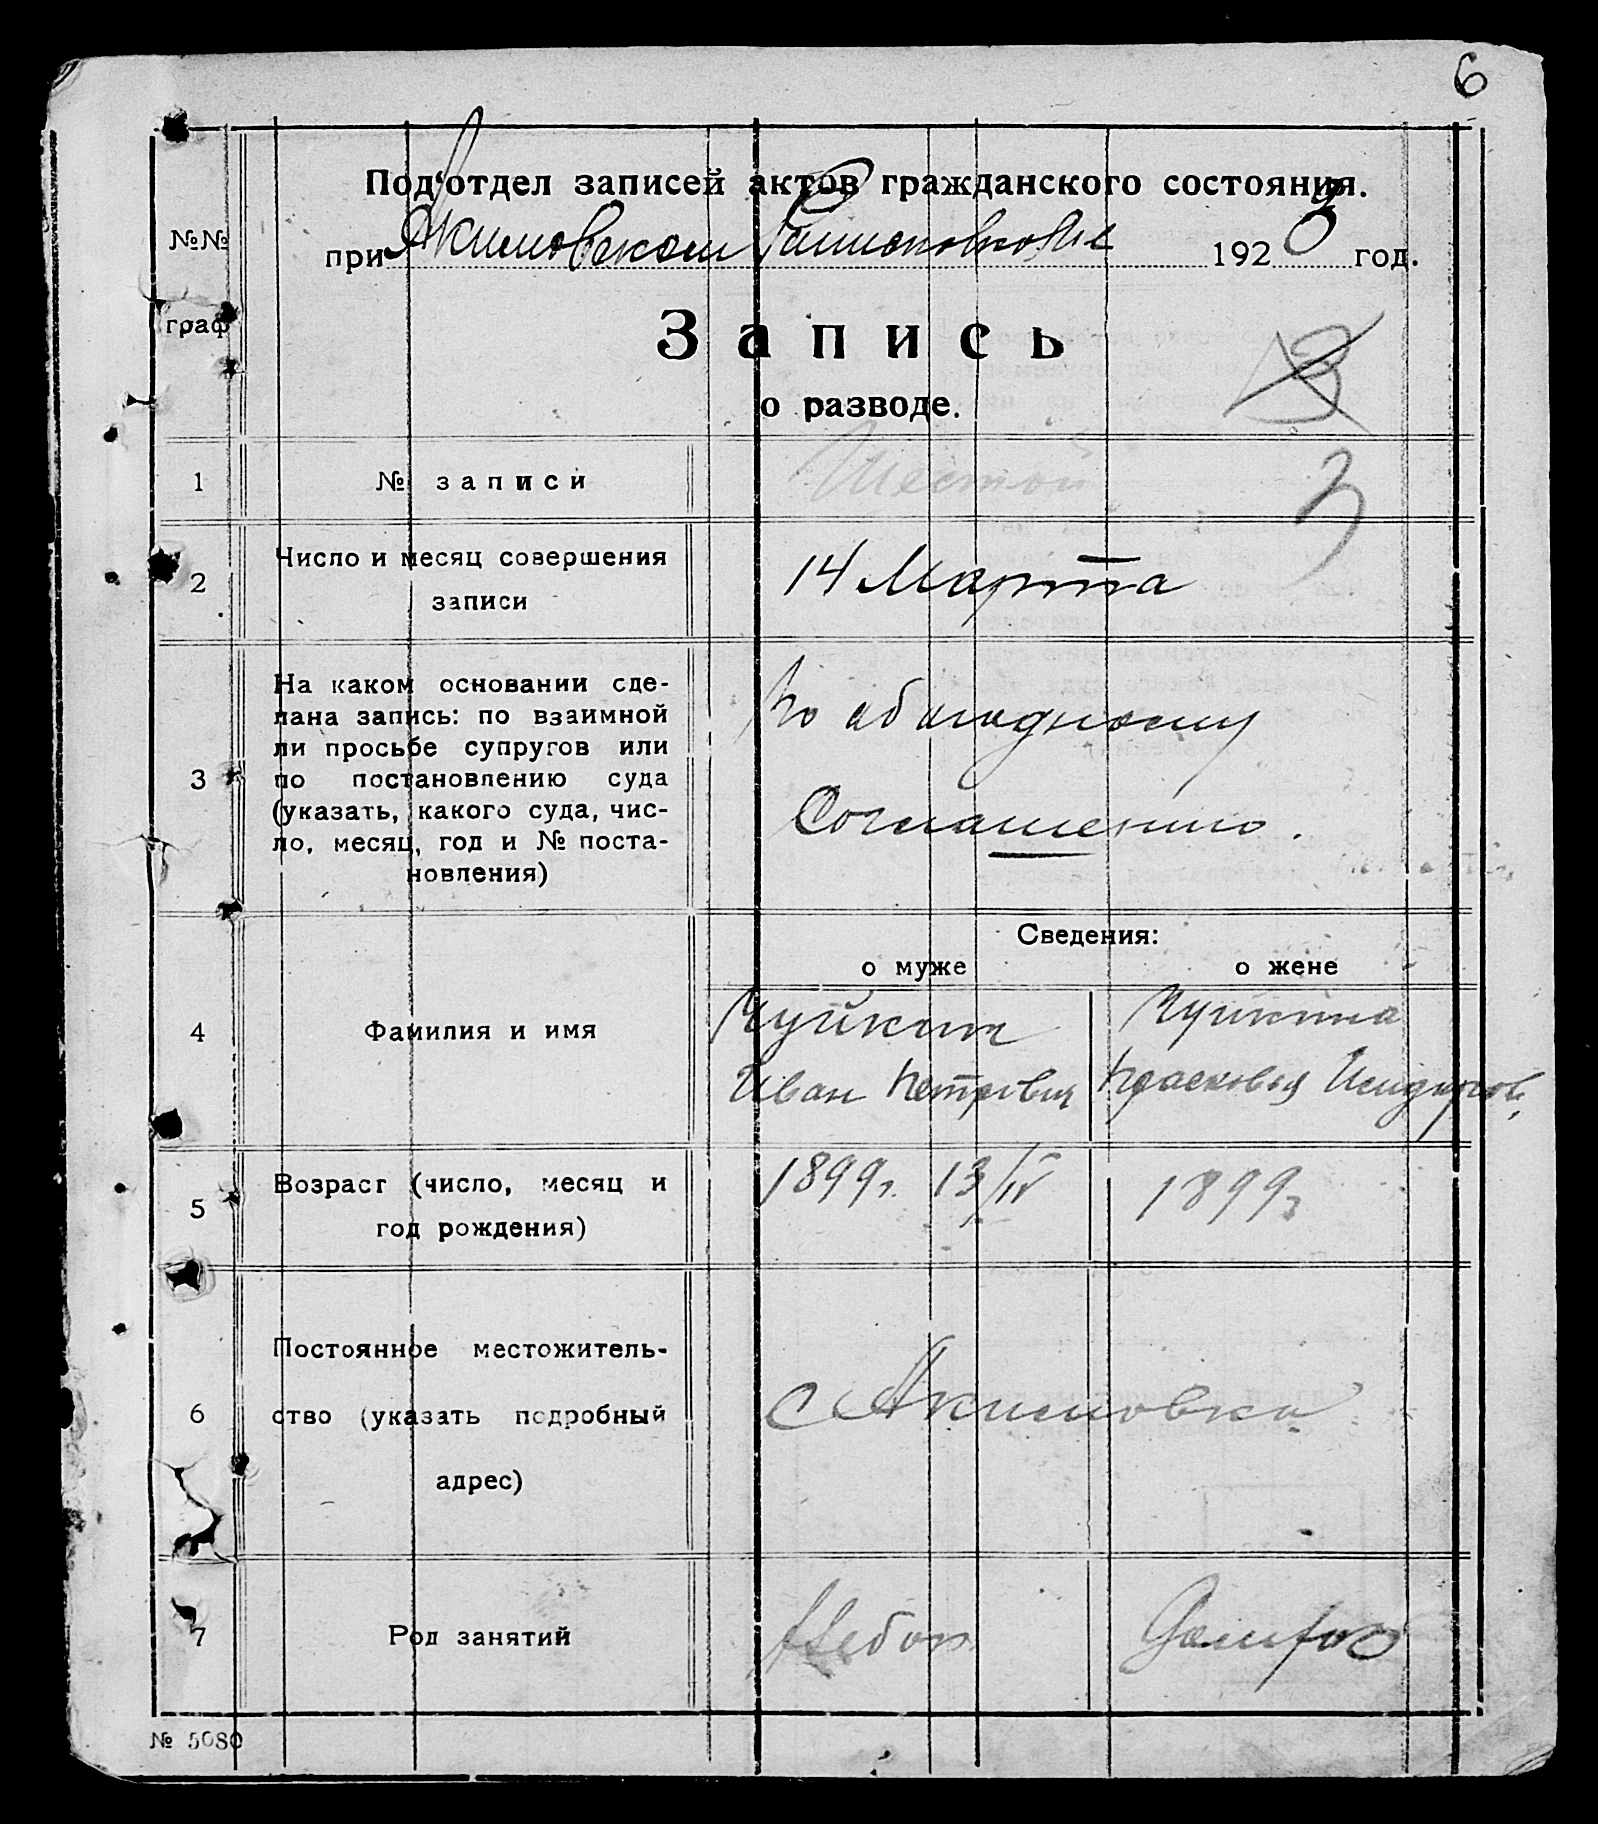 6
Под'отдел записей актов гражданского состояния.
№№ граф
при Акимовском Райисполкоме 1923 год.
Запись
о разводе.
1 № записи Шестой 3
2 Число и месяц совершения записи 14 Марта
3 На каком основании сде-
лана запись: по взаимной
ли просьбе супругов или
по постановлению суда
(указать, какого суда, чис-
ло, месяц, год и № поста-
новления)
По обоюдному
Соглашению.
Сведения:
о муже о жене
4 Фамилия и имя
Иван Петрович
Прасковья
5 Возраст (число, месяц и
год рождения)
1899г. 13/IV 1899г
6 Постоянное местожитель-
ство (указать подробный
адрес)
с Акимовка
7 Род занятий
№ 5080